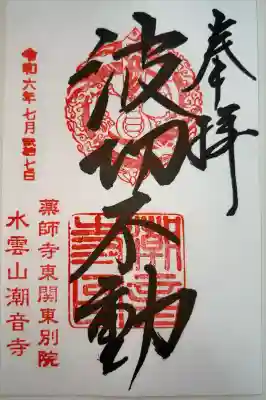 奉拝
波切不動
令和六年七月二十七日
薬師寺東関東別院
水雲山潮音寺